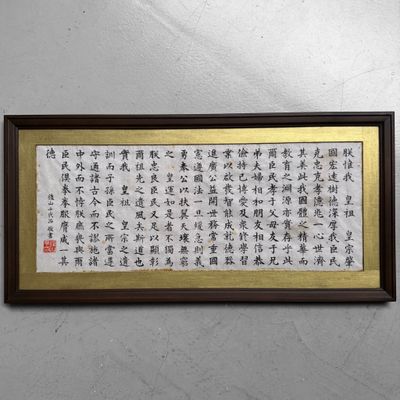 朕惟我 皇祖 皇宗肇
國宏遠樹德深厚我臣民
克忠克孝億兆一心世濟
其美此我國體之精華而
教育之淵源亦實存乎此
爾臣民孝于父母友于兄
弟夫婦相和朋友相信恭
儉持己博愛及衆修學習
業以啟發智能成就德器
進廣公益開世務常重國
憲遵國法一旦緩急則義
勇奉公以扶翼天壤無窮
之 皇運如是者不獨為
朕忠良臣民又足以顯彰
爾祖先之遺風矣斯道也
實我 皇祖 皇宗之遺
訓而子孫臣民之所當遵
守通諸古今而不謬施諸
中外而不悖朕庶幾與爾
臣民俱拳拳服膺咸一其
德
敬書